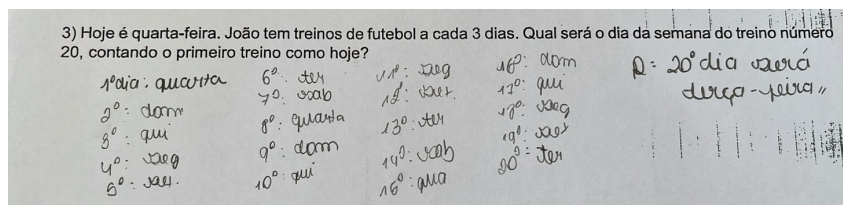 3) Hoje é quarta-feira. João tem treinos de futebol a cada 3 dias. Qual será o dia da semana do treino número
20, contando o primeiro treino como hoje?
1º dia: quarta
2º: dom
3º: qui
4º: seg
5º: sex.
6º: ter
7º: sab
8º: quarta
9º: dom
10º: qui
11º: seg
12º: sex.
13º: ter
14º: sab
16º: qua
16º: dom
17º: qui
18º: seg
19º: sex
20º: ter
R: 20º dia será
terça-feira,,